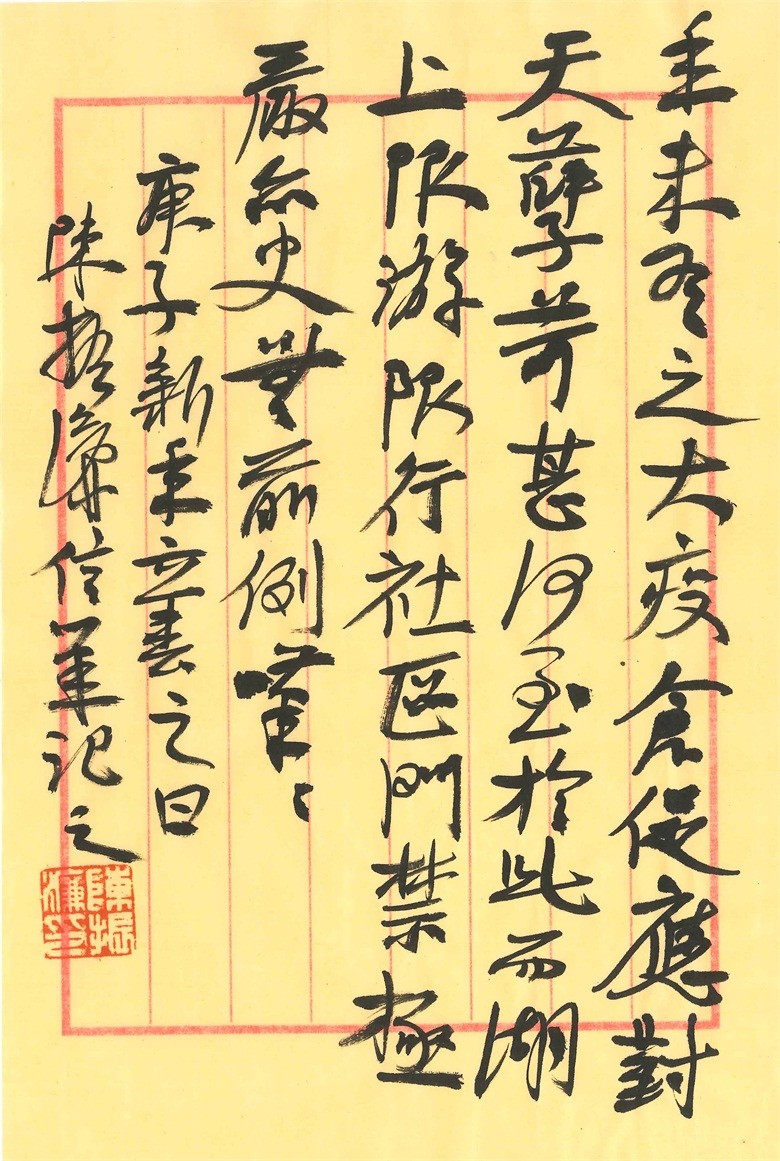 年末冬之大疫倉促應對
天孽苛甚何至於此而湖
上限游限行社区門禁極
嚴亦史無前例嘆〻
庚子新年立春之日
陳振濂信筆記之
陳振濂印